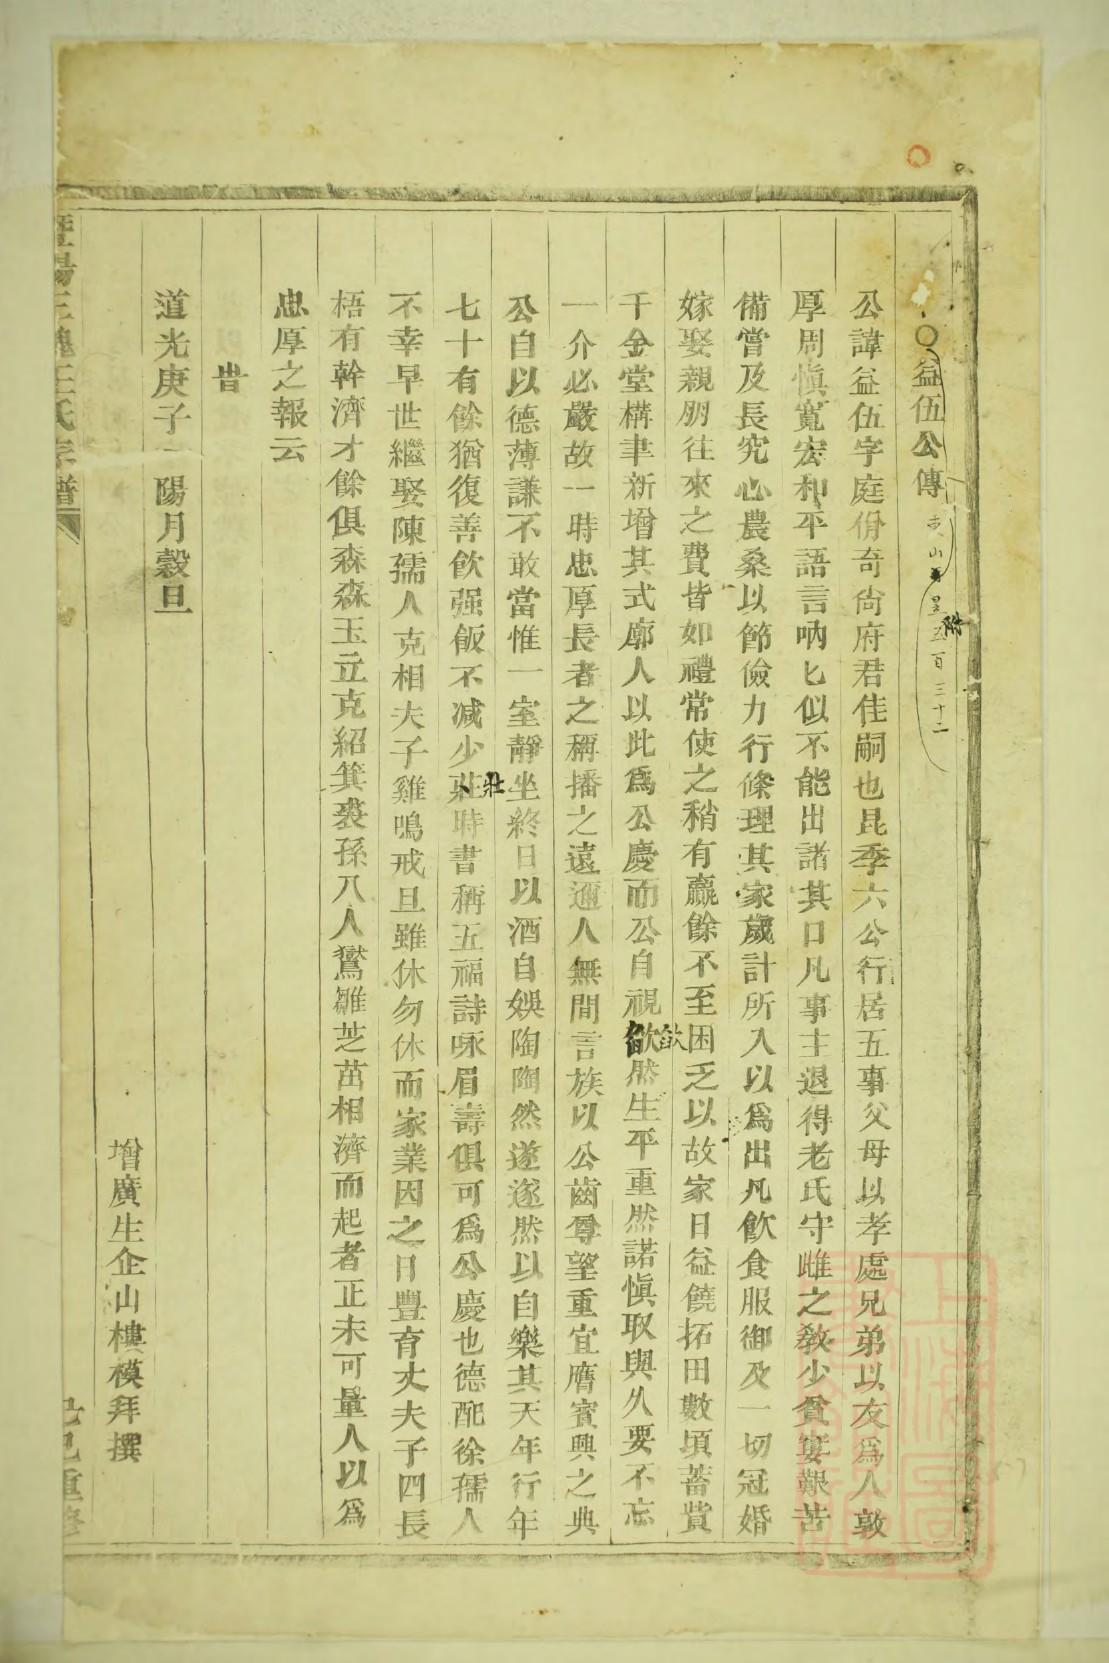 ○益伍公傳
附
公諱益伍字庭份奇尙府君佳嗣也昆季六公行居五事父母以孝處兄弟以友爲人敦
厚周愼寬宏和平語言吶匕似不能出諸其口凡事主退得老氏守雌之敎少貧寠艱苦
備嘗及長究心農桑以節儉力行條理其家歲計所入以爲出凡飮食服御及一切冠婚
嫁娶親朋往來之費皆如禮常使之稍有贏餘不至困乏以故家日益饒拓田數頃蓄貲
千金堂構聿新增其式廓人以此爲公慶而公自視歆然生平重然諾愼取與久要不忘
一介必嚴故一時忠厚長者之稱播之遠邇人無間言族以公齒尊望重宜膺賓興之典
公自以德薄謙不敢當惟一室靜坐終日以酒自娛陶陶然遂遂然以自樂其天年行年
七十有餘猶復善飮强飯不減少壯時書稱五福詩咏眉壽俱可爲公慶也德配徐孺人
不幸早世繼娶陳孺人克相夫子雞鳴戒旦雖休勿休而家業因之日豐育丈夫子四長
梧有幹濟才餘俱森森玉立克紹箕裘孫八人鸑雛芝茁相濟而起者正未可量人以爲
忠厚之報云
旹
道光庚子一陽月穀旦
增廣生企山樓模拜撰
暨陽王氏宗譜
己巳重修